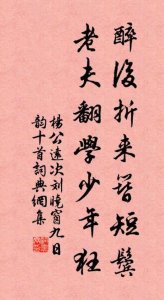 醉後折来簪短鬓
老夫翻學少年狂
楊公遠次刘曉窗九日
韵十首詞典網集